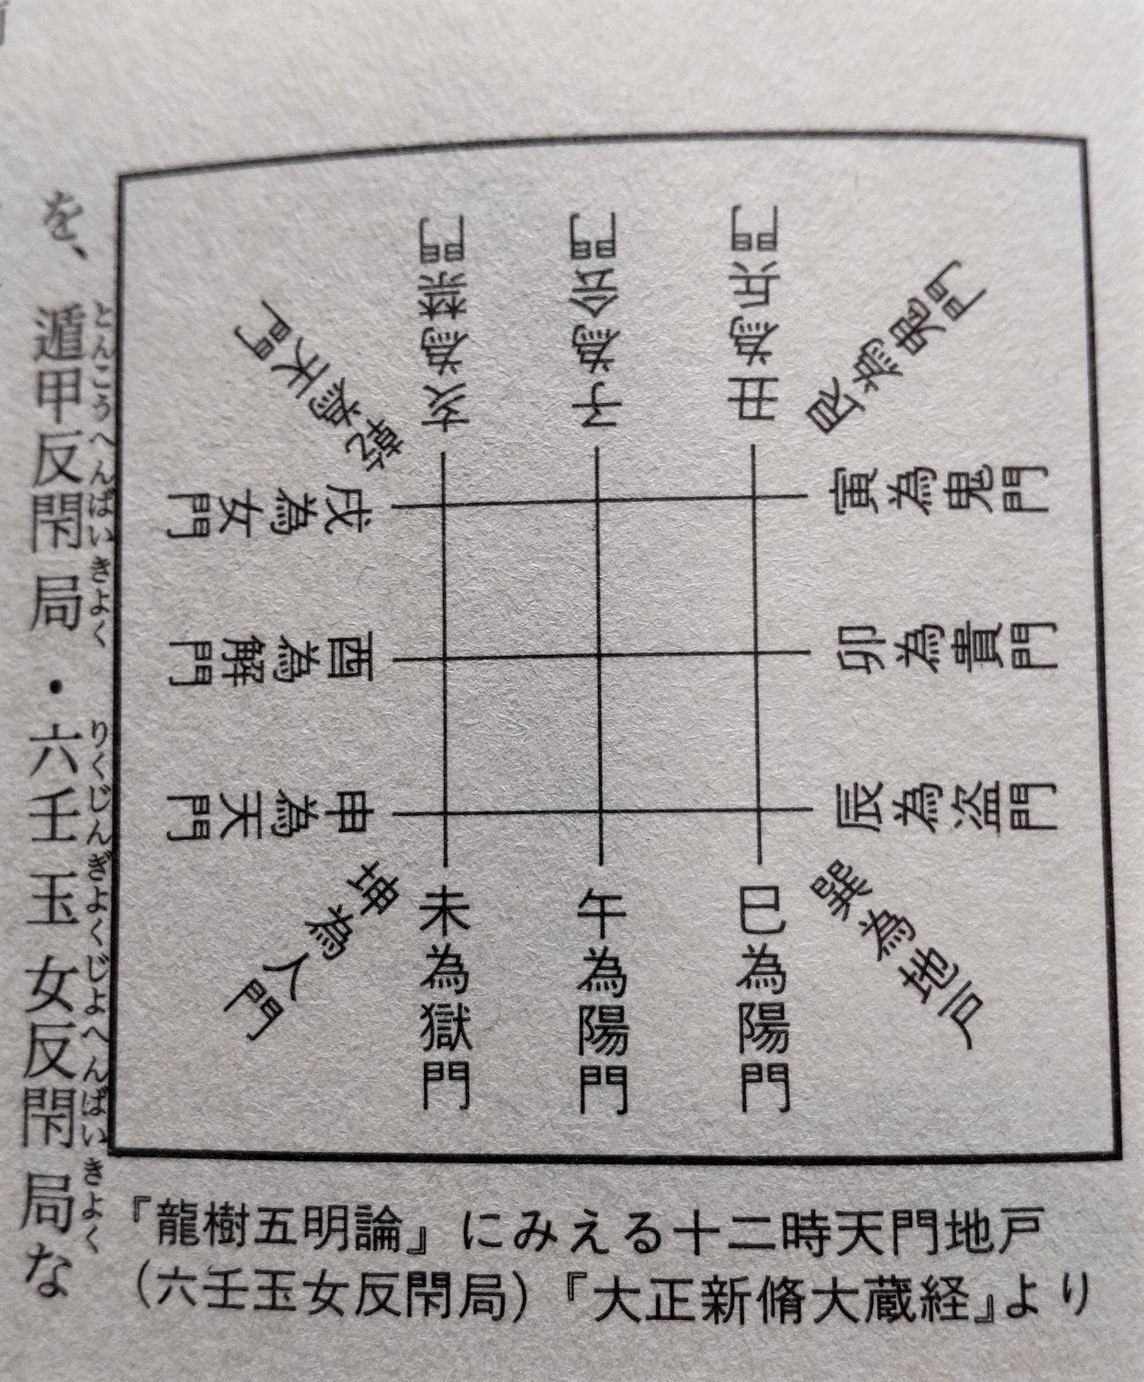 乾為天門
亥為禁門
子為合門
丑為兵門
艮為鬼門
寅為鬼門
卯為貴門
辰為盗門
巽為地戸
巳為陽門
午為陽門
未為獄門
坤為人門
申為天門
酉為解門
戌為女門
『龍樹五明論』にみえる十二時天門地戸
（六壬玉女反閇局）『大正新脩大蔵経』より
とんこうへんばいきよく りくじんぎよくじよへんばいきよく
を、遁甲反閇局・六壬玉女反閇局な